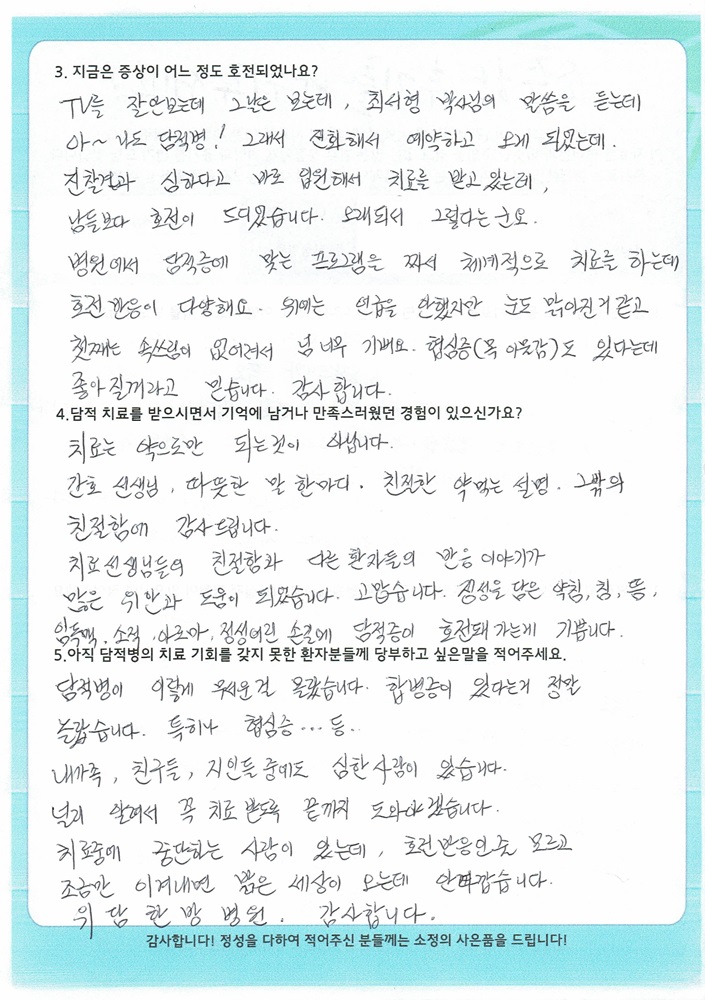 3. 지금은 증상이 어느 정도 호전되었나요?
TV를 잘안보는데 그날은 보는데, 최서형 박사님의 말씀을 듣는데
아~ 나도 담적병! 그래서 전화해서 예약하고 오게 되었는데.
진찰결과 심하다고 바로 입원해서 치료를 받고 있는데,
남들보다 호전이 드디었습니다. 오래되서 그렇다는군요.
병원에서 담적증에 맞는 프로그램을 짜서 체계적으로 치료를 하는데
호전반응이 다양해요. 위에는 언급을 안했지만 눈도 맑아진거 같고
첫째는 속쓰림이 없어져서 넘너무 기뻐요. 협심증(목 아픗감)도 있다는데
좋아질꺼라고 믿습니다. 감사합니다.
4.담적 치료를 받으시면서 기억에 남거나 만족스러웠던 경험이 있으신가요?
치료는 약으로만 되는것이 아닙니다.
간호 선생님, 따뜻한 말 한마디. 친절한 약먹는 설명. 그밖의
친절함에 감사드립니다.
치료선생님들의 친절함과 다른 환자들의 반응 이야기가
많은 위안과 도움이 되었습니다. 고맙습니다. 정성을 담은 약침, 침, 뜸,
소적, 아로마, 정성어린 손길에 담적증이 호전돼 가는게 기쁩니다.
5.아직 담적병의 치료 기회를 갖지 못한 환자분들께 당부하고 싶은말을 적어주세요.
담적병이 이렇게 무서운걸 몰랐습니다. 합병증이 있다는거 정말
놀랐습니다. 특히나 협심증... 등.
내가족, 친구들, 지인들중에도 심한사람이 있습니다.
널리 알려서 꼭 치료 받도록 끝까지 도와야겠습니다.
치료중에 중단하는 사람이 있는데, 호전반응인줄 모르고
조금만 이겨내면 밝은 세상이 오는데 안타깝습니다.
위담한방병원. 감사합니다.
감사합니다! 정성을 다하여 적어주신 분들께는 소정의 사은품을 드립니다!